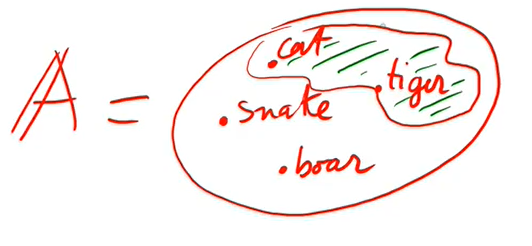 𝔸 =
cat
tiger
snake
boar